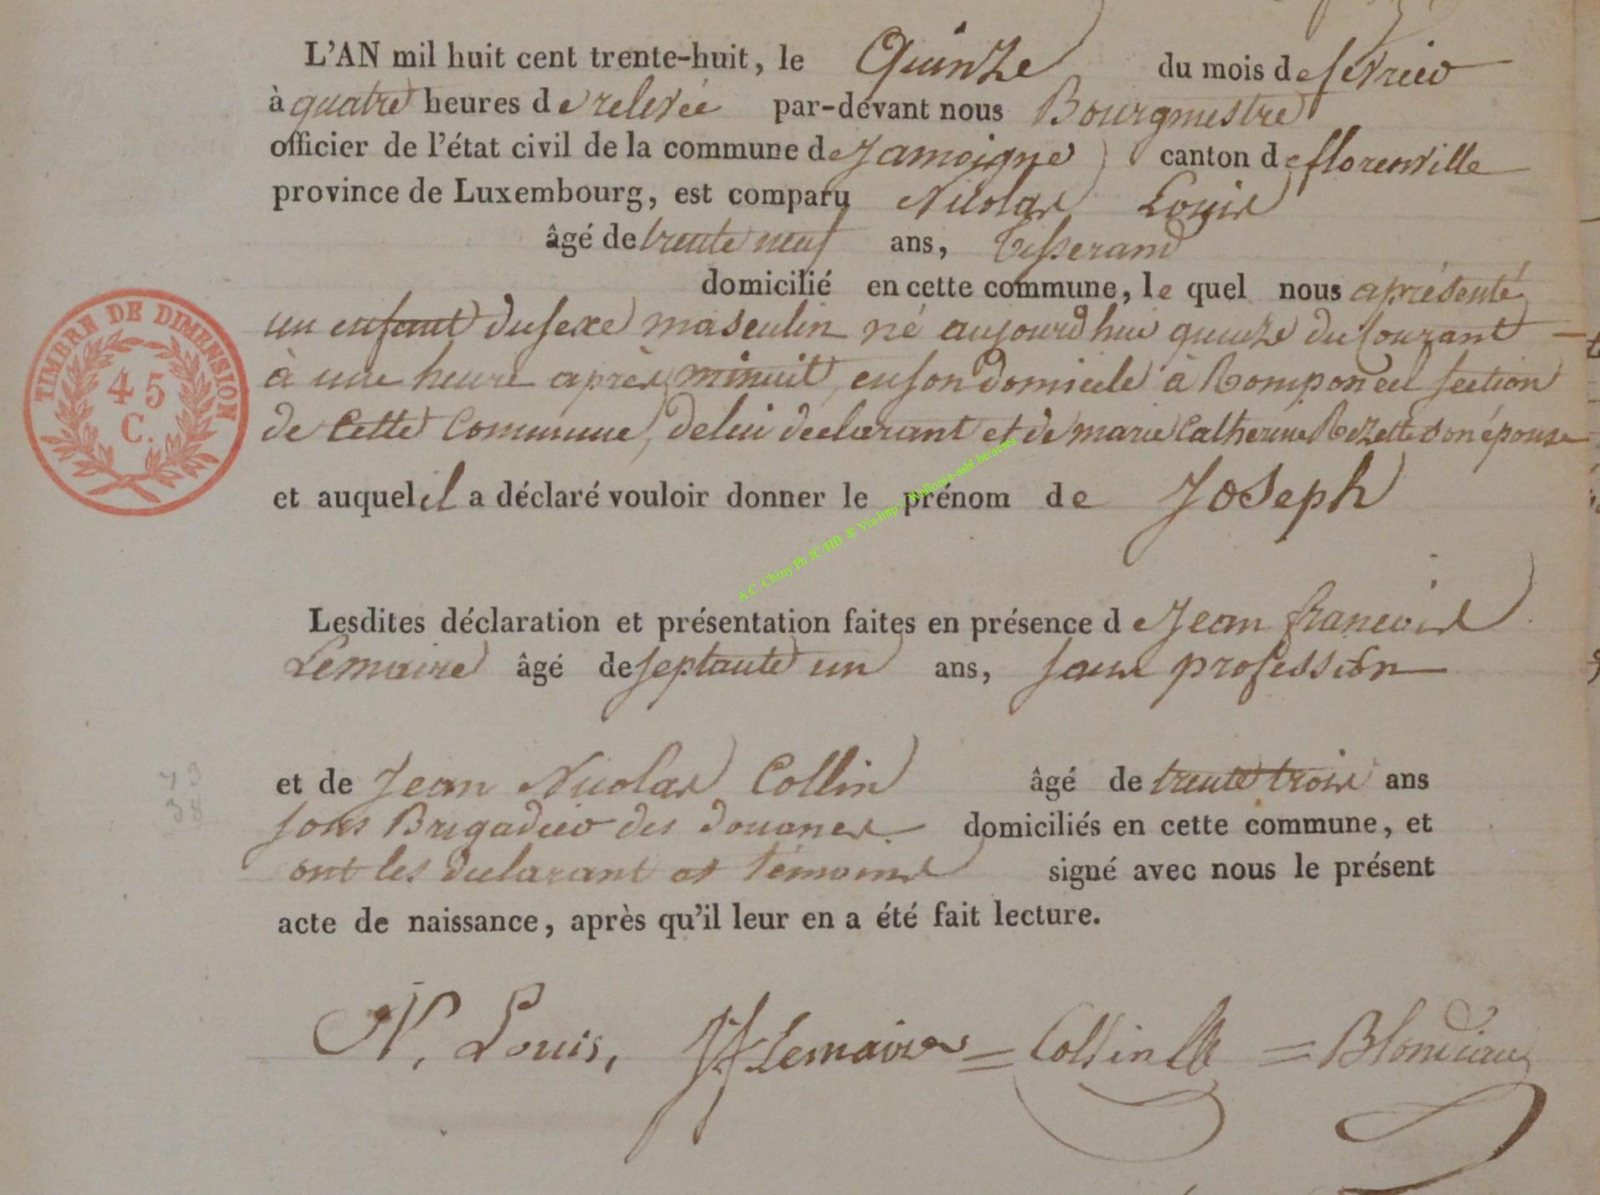 L'AN mil huit cent trente-huit, le Quinze du mois de fevrier
à quatre heures de relevée par-devant nous Bourgmestre
officier de l'état civil de la commune de Jamoigne canton de florenville
province de Luxembourg, est comparu Nicolas Louis
âgé de trente neuf ans, Tisserand
domicilié en cette commune, le quel nous aprésenté
un enfant du sexe masculin né aujourd'hui quinze du Courant
à une heure après minuit, en son domicile à Romponcel section
de Cette Commune, de lui declarant et de marie Catherine Rezette son épouse
et auquel il a déclaré vouloir donner le prénom de Joseph
Lesdites déclaration et présentation faites en présence de Jean francois
Lemaire âgé de septante un ans, sans profession
et de Jean Nicolas Collin âgé de trente trois ans
sous Brigadier des douanes domiciliés en cette commune, et
ont les declarant et témoins signé avec nous le présent
acte de naissance, après qu'il leur en a été fait lecture.
N. Louis, JF lemaire = Collin = Blondiau
TIMBRE DE DIMENSION
45
C.
A.C. Chiny Ph JC/HB